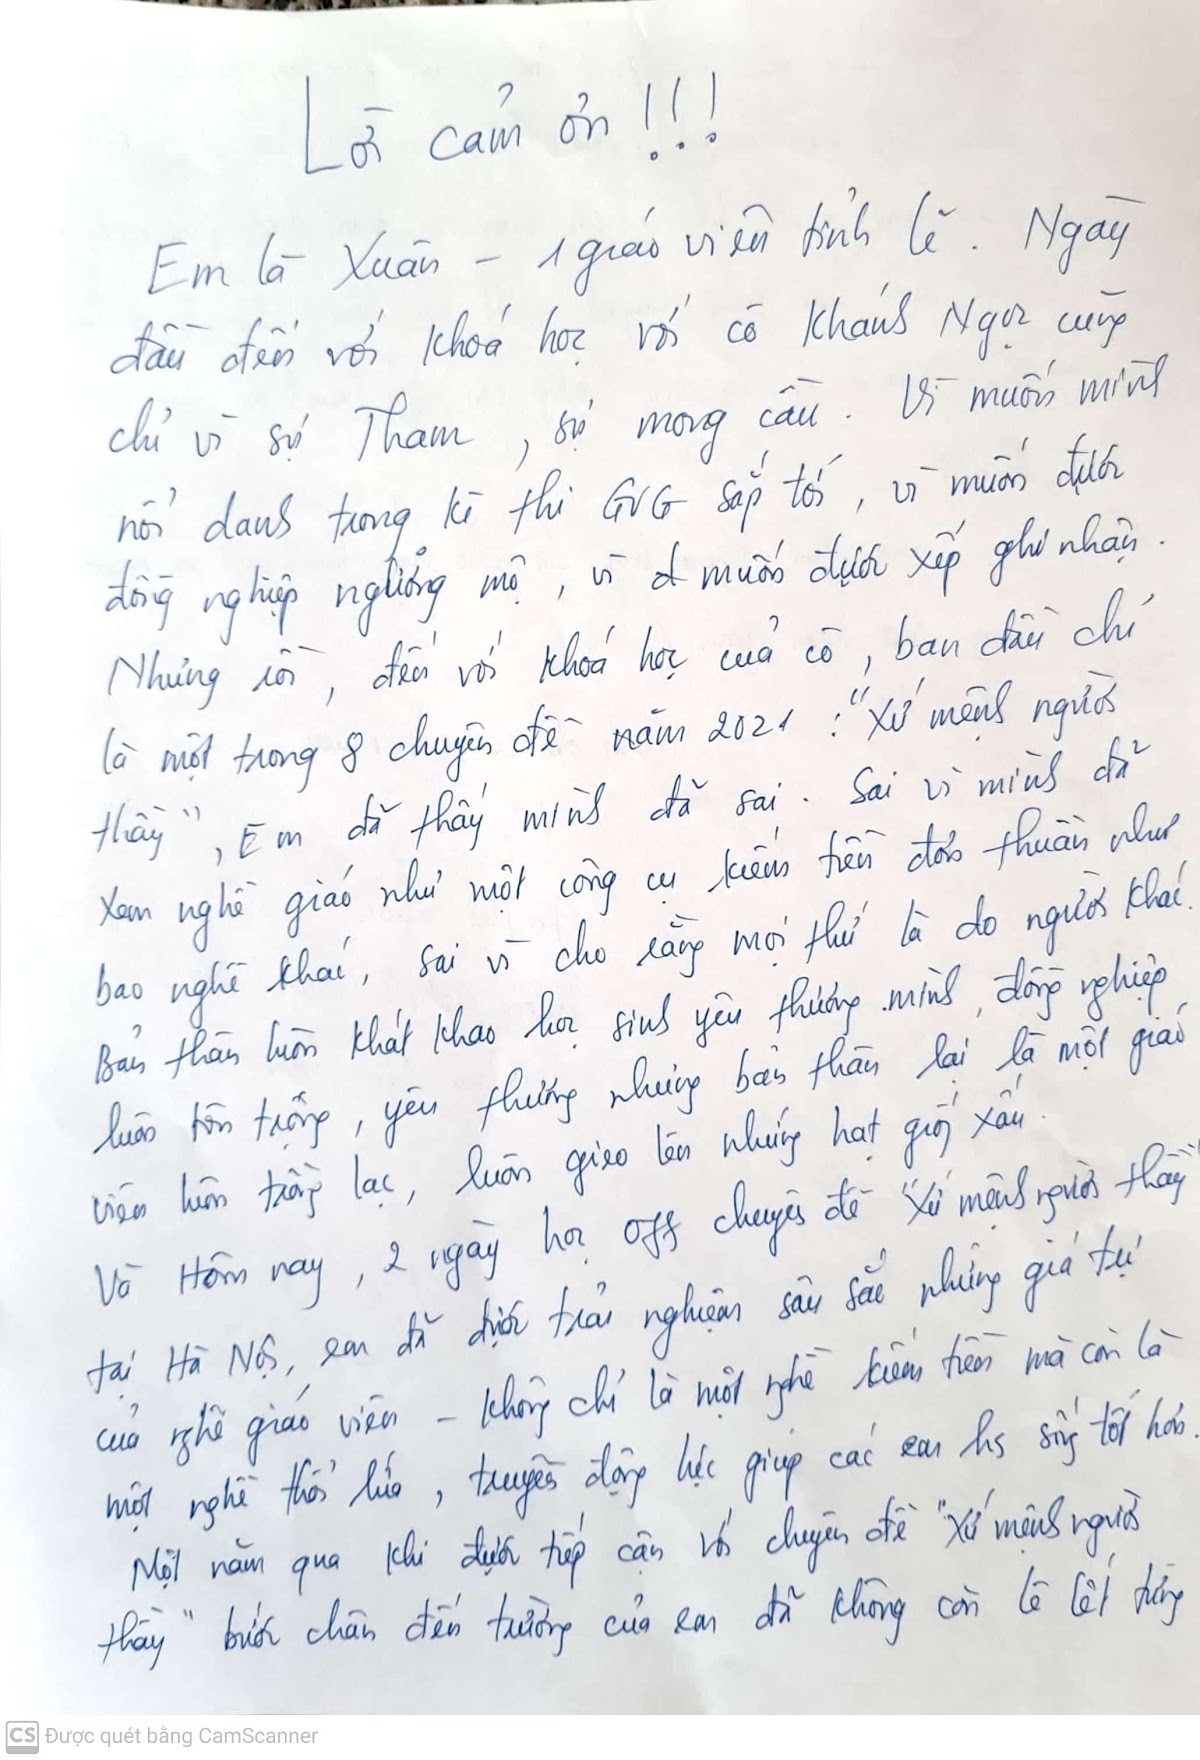 Lời cảm ơn!!!
Em là Xuân - 1 giáo viên tỉnh lẻ. Ngày
đầu đến với khoá học với cô Khánh Ngọc cũng
chỉ vì sự Tham, sự mong cầu. Vì muốn mình
nổi danh trong kì thi GVG sắp tới, vì muốn được
đồng nghiệp ngưỡng mộ, vì muốn được xếp ghi nhận.
Nhưng rồi, đến với khoá học của cô, ban đầu chỉ
là một trong 8 chuyên đề năm 2021: "Xứ mệnh người
thầy", Em đã thấy mình đã sai. Sai vì mình đã
xem nghề giáo như một công cụ kiếm tiền đơn thuần như
bao nghề khác, sai vì cho rằng mọi thứ là do người khác.
Bản thân luôn khát khao học sinh yêu thương mình, đồng nghiệp
luôn tôn trọng, yêu thương nhưng bản thân lại là một giáo
viên luôn trồng lạc, luôn gieo lên những hạt giống xấu.
Và Hôm nay, 2 ngày học off chuyên đề "Xứ mệnh người thầy"
tại Hà Nội, em đã được trải nghiệm sâu sắc những giá trị
của nghề giáo viên - không chỉ là một nghề kiếm tiền mà còn là
một nghề thổi lửa, truyền động lực giúp các em hs sống tốt hơn.
Một năm qua khi được tiếp cận với chuyên đề "Xứ mệnh người
thầy" bước chân đến trường của em đã không còn lê lết từng
CS Được quét bằng CamScanner